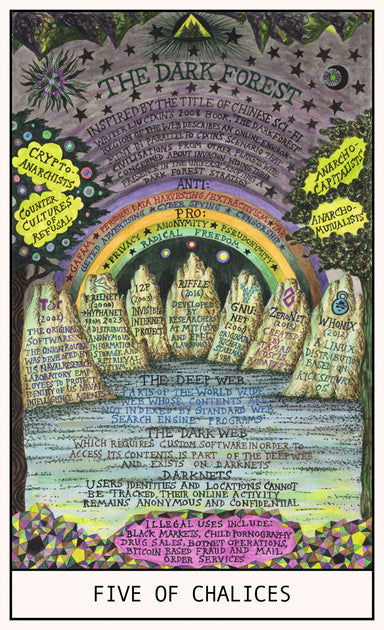 THE DARK FOREST
INSPIRED BY THE TITLE OF CHINESE SCI-FI
WRITER LIU CIXIN'S 2008 BOOK, "THE DARK FOREST"
VERSION OF THE WEB DESCRIBES AN ONLINE
LIVING IN PARALLEL TO CIXIN'S SCENARIO THAT
CIVILISATIONS FROM OTHER PLANETS ARE
CONCERNED ABOUT INVASION, HIDING THEIR
PRESENCE IN THE UNIVERSE AS
DARK FOREST STRATEGY
CRYPTO-
ANARCHISTS
COUNTER-
CULTURES
OF
REFUSAL
ANARCHO-
CAPITALISTS
ANARCHO-
MUTUALISTS
ANTI:
GAFAM ★ PERSONAL DATA HARVESTING/EXTRACTIVISM
TARGETED ADVERTISING ★ CYBER SPYING ★ CENSORSHIP
PRO:
PRIVACY ★ ANONYMITY ★ PSEUDONYMITY
RADICAL FREEDOM
TOR
(2002)
THE ORIGINAL
SOFTWARE,
THE ONION ROUTER
WAS DEVELOPED BY
US NAVAL RESEARCH
LABORATORY EMP-
LOYEES TO PROTECT
IDENTITY OF US NAVY
INTELLIGENCE AGENTS
FREENET
(2000)
HYPHANET
FROM 2023
A DISTRIBUTED,
ANONYMOUS
INFORMATION
STORAGE AND
RETRIEVAL
I2P
(2003)
INVISIBLE
INTERNET
PROJECT
RIFFLE
(2016)
DEVELOPED
BY
RESEARCHERS
AT MIT (USA)
AND EPFL
GNU-
NET
(2001)
ZERONET
(2015)
CREATED
WHONIX
(2012)
A LINUX
DISTRIBUTION
BASED ON
KICKSECURE
OS
THE DEEP WEB
PARTS OF THE WORLD WIDE
WEB WHOSE CONTENTS ARE
NOT INDEXED BY STANDARD WEB
SEARCH ENGINE PROGRAMS
THE DARK WEB
WHICH REQUIRES CUSTOM SOFTWARE IN ORDER TO
ACCESS ITS CONTENTS, IS PART OF THE DEEP WEB
AND EXISTS ON DARKNETS
DARKNETS
USERS IDENTITIES AND LOCATIONS CANNOT
BE TRACKED, THEIR ONLINE ACTIVITY
REMAINS ANONYMOUS AND CONFIDENTIAL
ILLEGAL USES INCLUDE:
BLACK MARKETS, CHILD PORNOGRAPHY
DRUG SALES, BOTNET OPERATIONS,
BITCOIN BASED FRAUD AND MAIL
ORDER SERVICES
FIVE OF CHALICES